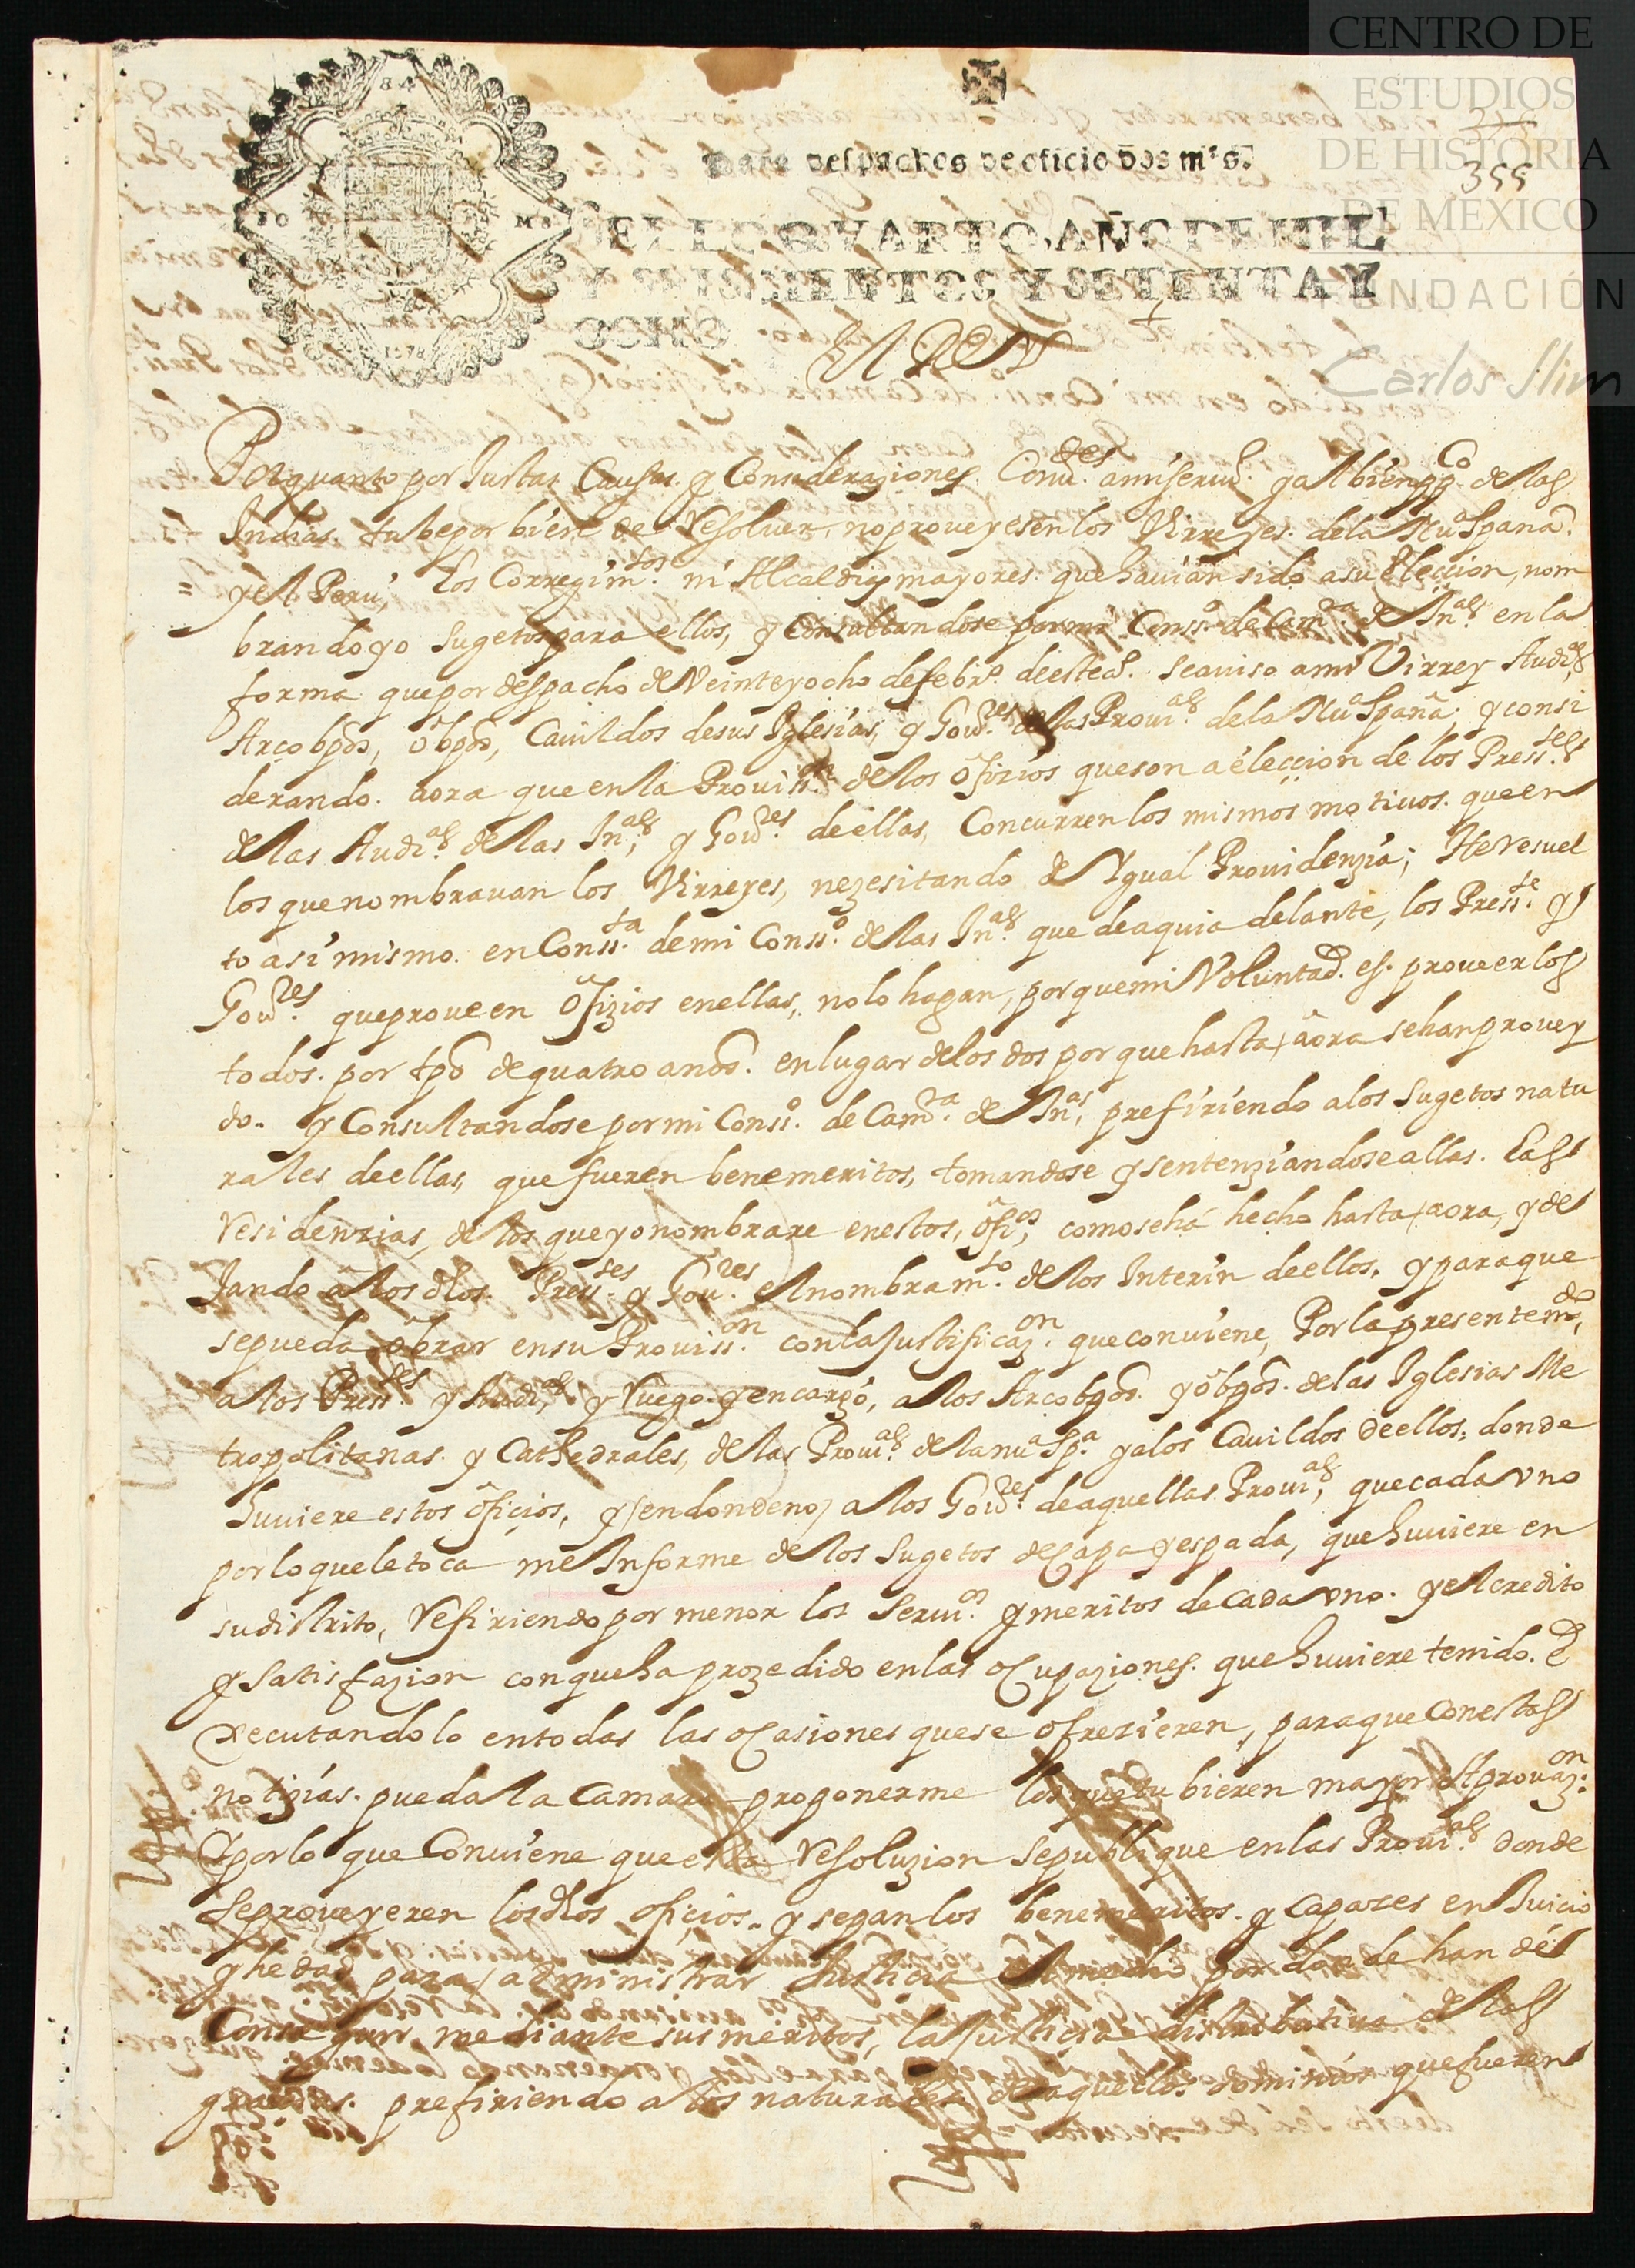 CENTRO DE
ESTUDIOS
DE HISTORIA
DE MEXICO
FUNDACIÓN
Carlos Slim
355
Para despachos de oficio dos mrs.
SELLO QVARTO, AÑO DE MIL
Y SEISCIENTOS Y SETENTA Y
OCHO
El Rey
Por quanto por Justas Causas. y Consideraziones. Conu.tes a mi seruo. y al bien ppco. de las
Indias. tube por bien de Resoluer, no proveyesen los Virreyes. de la Nua. Spaña.
y el Peru, los Corregimtos. ni Alcaldias mayores. que hauian sido a su eleccion, nom
brando yo sugetos para ellos, y Consultandose por mi Consso. de Camra. de Inas. en la
forma que por despacho de Veinte y ocho de febro. de este ao. se auiso a mi Virrey Audias,
Arcobpos, obpos, Cauildos de sus Iglesias, y Goures. de las Prouias. de la Nua Spaña, y consi
derando. aora que en la Prouisson. de los ofizios que son a elecçion de los Presstes.
de las Audias. de las Inas, y Goures. de ellas, Concurren los mismos motiuos. que en
los que nombrauan los Virreyes, nezesitando de Ygual Prouidenzia; He resuel
to asi mismo. en Conssta. de mi Consso. de las Inas. que de aqui adelante, los Presste. y
Goures. que proueen ofizios en ellas, no lo hagan, porque mi Voluntad. es. proueer los
todos. por tpo de quatro anos. en lugar de los dos por que hasta aora se han provey
do. y Consultandose por mi Consso. de Camra. de Inas, prefiriendo a los sugetos natu
rales de ellas, que fueren benemeritos, tomandose y sentenziandose allas. Las
residenzias, de los que yo nombrare en estos, ofios, como se há hecho hasta aora, y de
Jando a los dhos. Presstes. y Goures. el nombramto. de los Interin de ellos. y para que
se pueda obrar en su Prouisson. con la Justificazon. que conuiene, Por la presente mdo,
a los Presstes. y Audias, y Ruego y encargo, a los Arcobpos. y obpos. de las Iglesias Me
tropolitanas. y Cathedrales, de las Prouias. de la nua. Spa. y a los Cauildos de ellos, donde
huuiere estos oficios, y (en donde no) a los Goures. de aquellas Prouias, que cada vno
por lo que le toca me Informe de los sugetos de Capa y espada, que huuiere en
su distrito, Refiriendo por menor los Seruios. y meritos de cada vno. y el credito
y satisfazion con que ha prozedido en las ocupaziones. que huuiere tenido. E
xecutandolo en todas las ocasiones que se ofrezieren, para que con estas
notizias. pueda la Camara proponerme los que tubieren mayor Aprouazon.
y por lo que Conuiene que esta Resoluzion se publique en las Prouias. donde
se proveyeren los dhos oficios. y sepan los benemeritos. y capazes en Juicio
y hedad para administrar Justicia el medio, por donde han de
Conseguir, mediante sus meritos, la Justicia distributiua de las
gracias. prefiriendo a los naturales de aquellos dominios que fueren